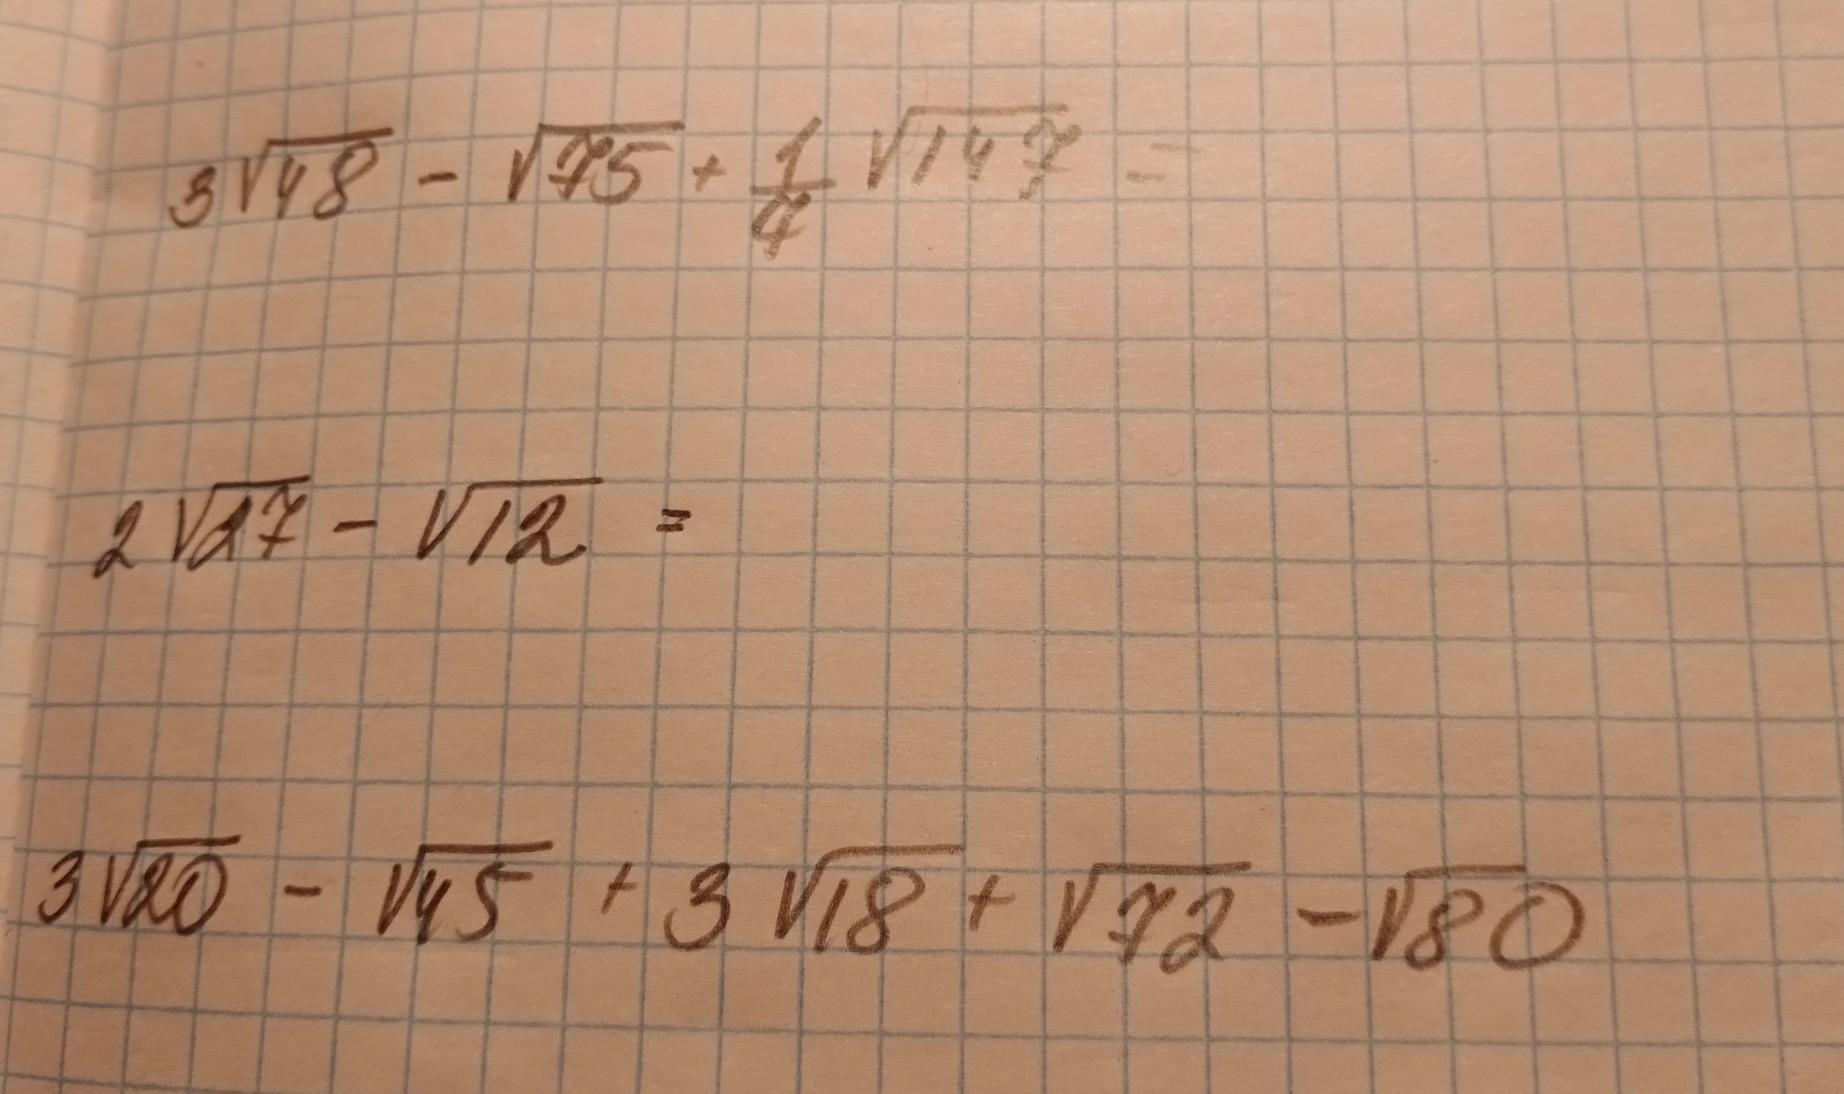 3√48 - √75 + 1/7 √147 =
2√27 - √12 =
3√20 - √45 + 3√18 + √72 - √80